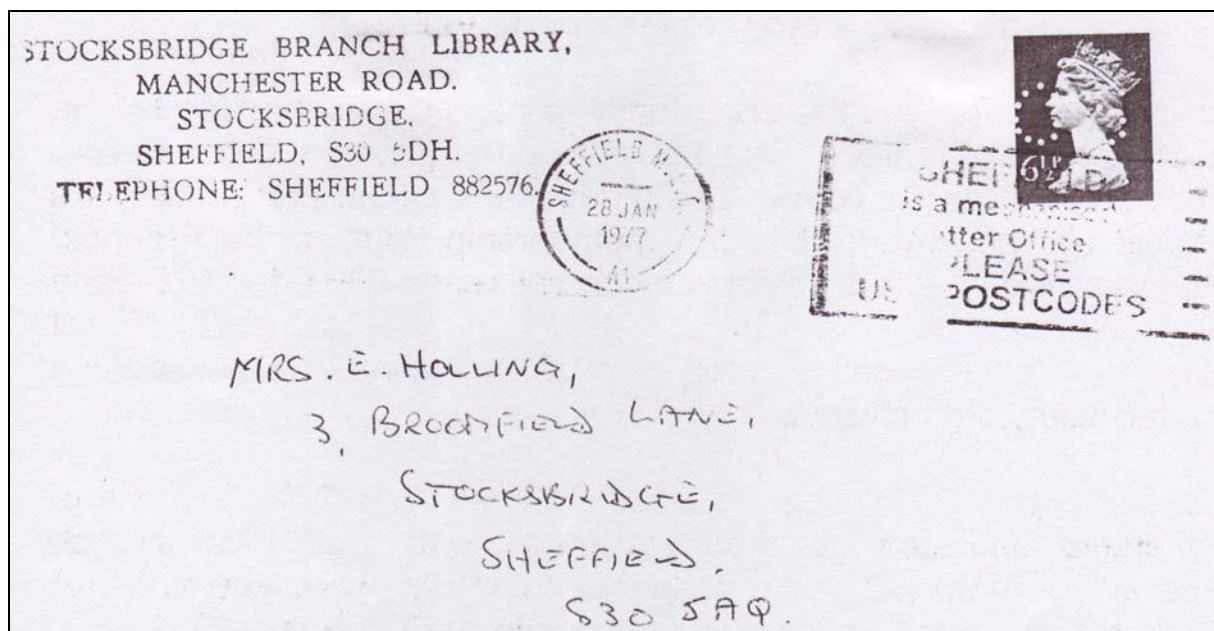 STOCKSBRIDGE BRANCH LIBRARY,
MANCHESTER ROAD.
STOCKSBRIDGE,
SHEFFIELD, S30 5DH.
TELEPHONE: SHEFFIELD 882576.
SHEFFIELD
28 JAN
1977
41
6½P
SHEFFIELD
is a mechanised
Office
PLEASE
POSTCODES
MRS. E. HOLLING,
3, BROOMFIELD LANE,
STOCKSBRIDGE,
SHEFFIELD.
S30 5AQ.